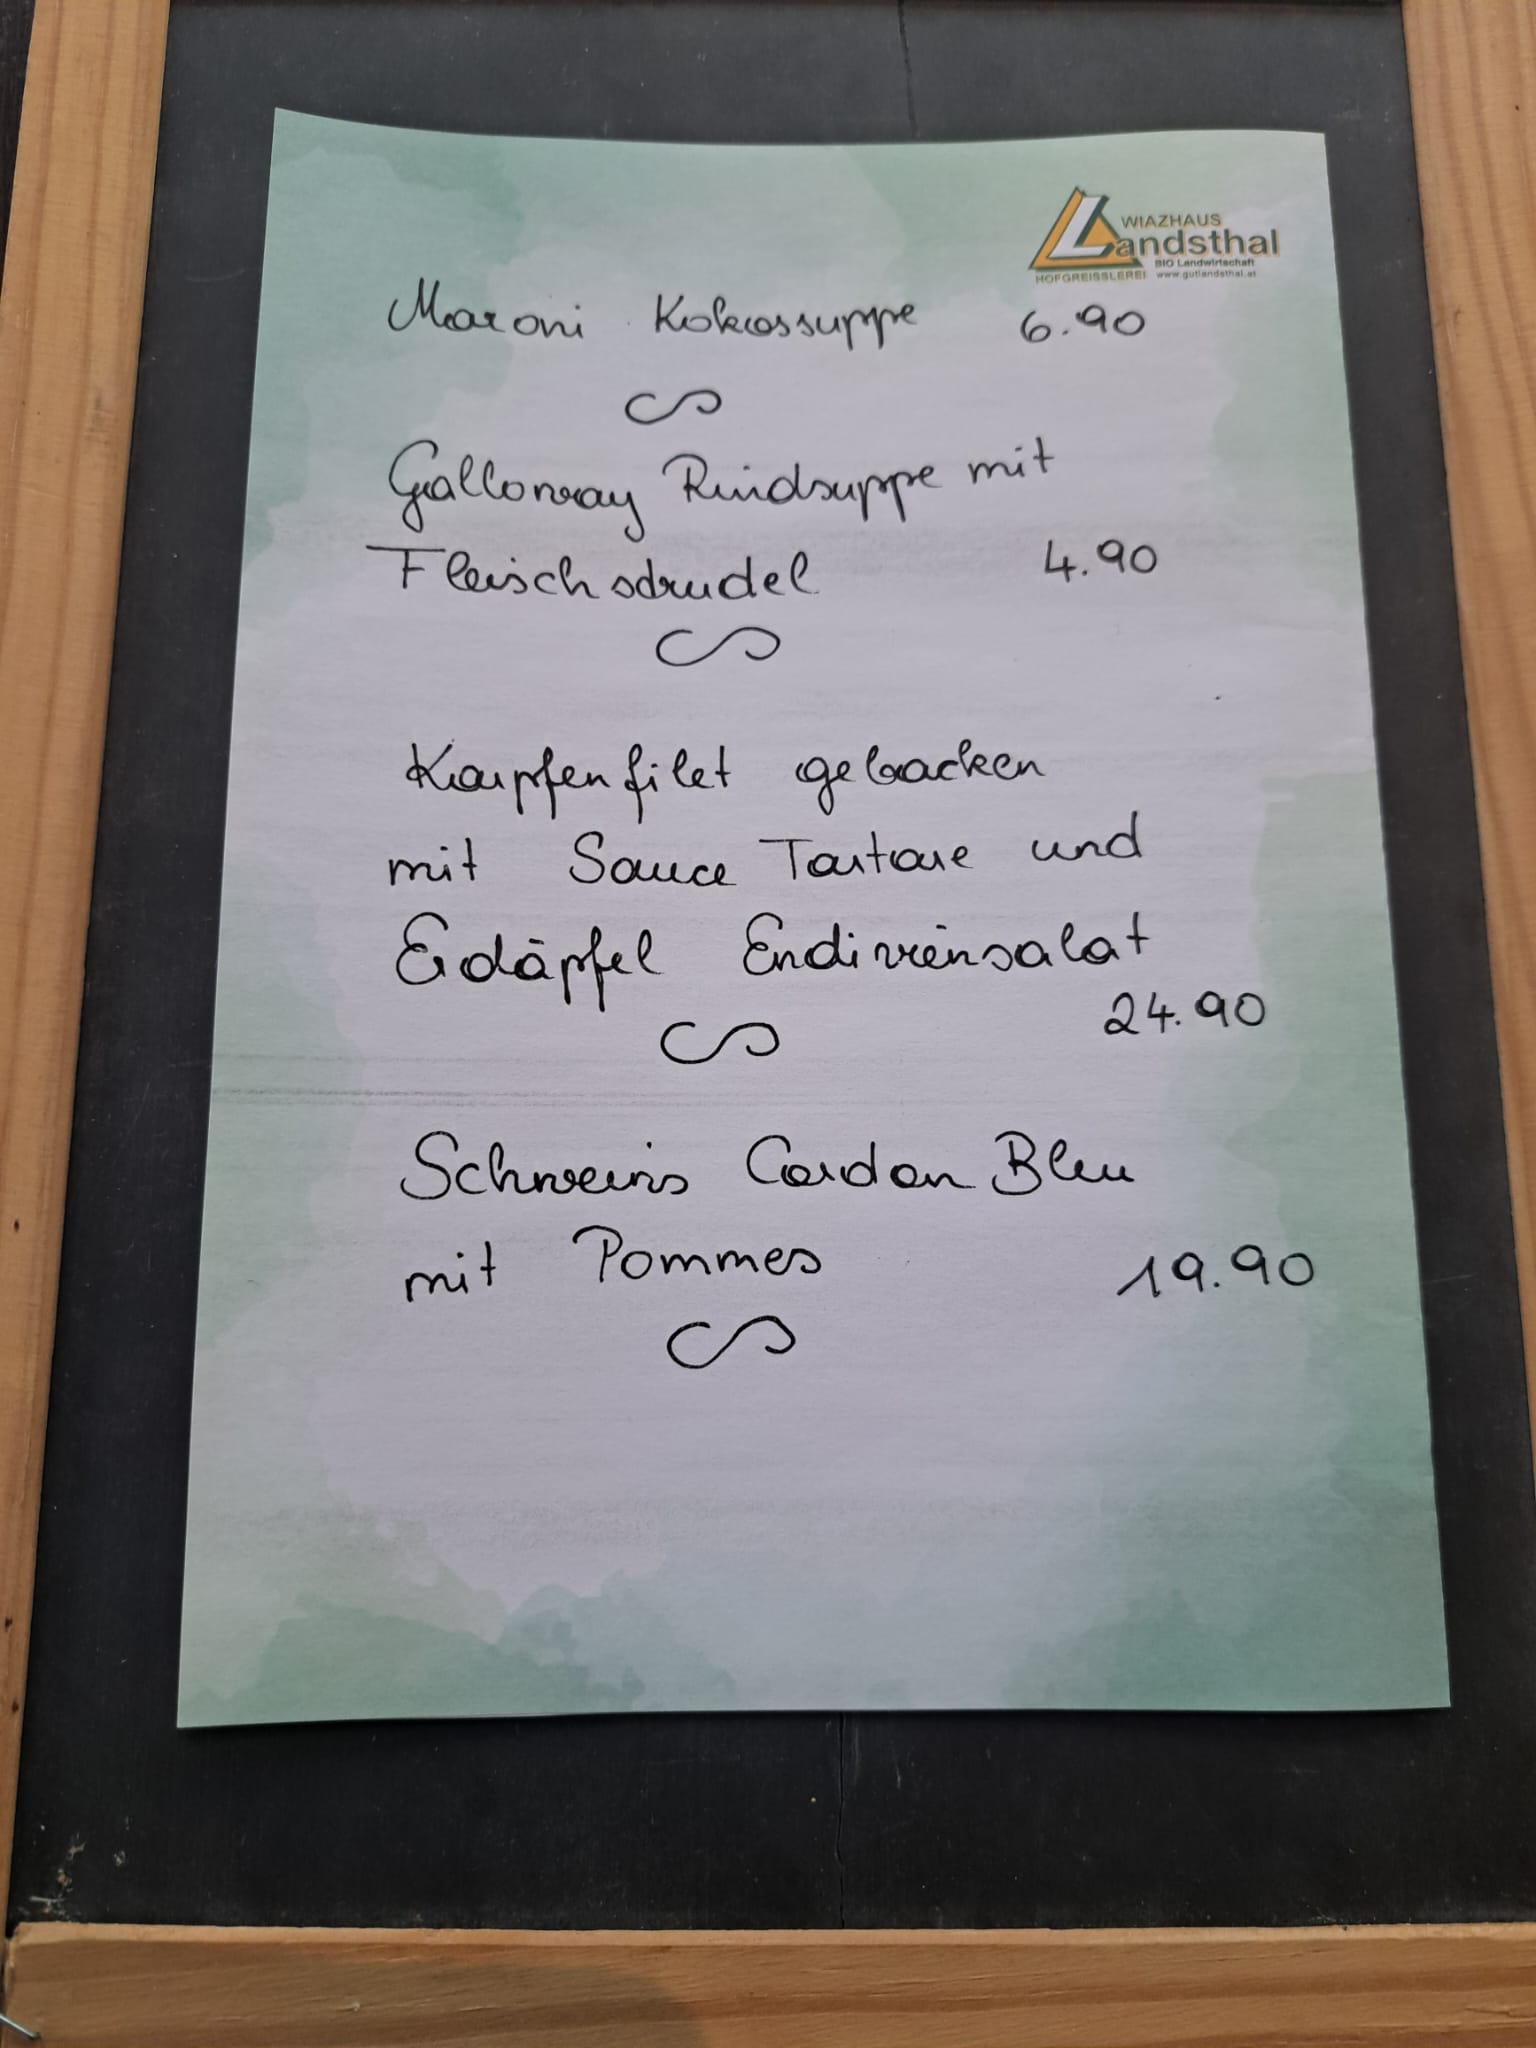 WIAZHAUS
Landsthal
BIO Landwirtschaft
HOFGREISSLEREI www.gutlandsthal.at
Maroni Kokossuppe 6.90
Galloway Rindsuppe mit
Fleischstrudel 4.90
Karpfenfilet gebacken
mit Sauce Tartare und
Erdäpfel Endiviensalat
24.90
Schweins Cordon Bleu
mit Pommes 19.90